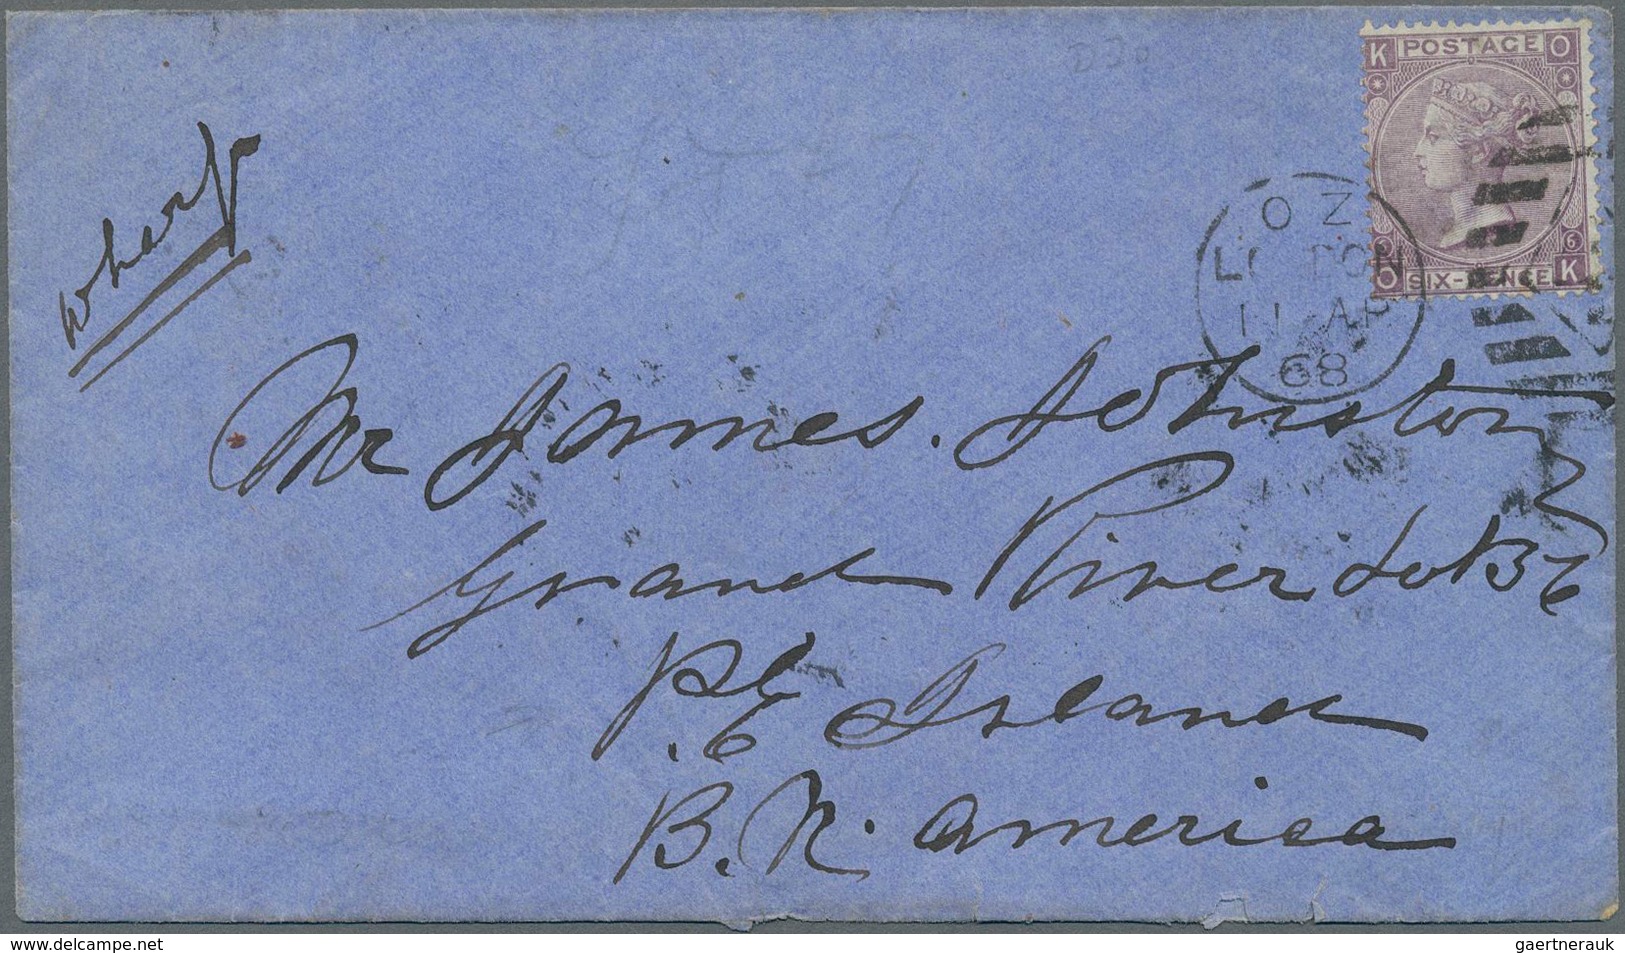 D30
K POSTAGE O
O SIX-PENCE K
6
O Z
LONDON
11 AP
68
Wharf
Mr James Johnston
Grand River Lot 56
P. E Island
B. N. America
delcampe.net
gaertnerauk